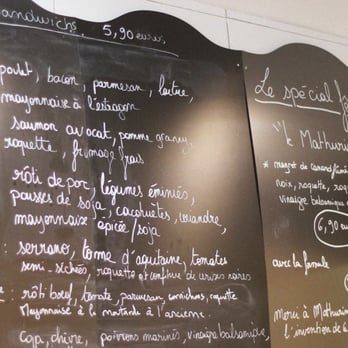 Sandwichs, 5,90 euros
poulet, bacon, parmesan, laitue,
mayonnaise à l'estragon
saumon avocat, pomme granny,
roquette, fromage frais
rôti de porc, légumes émincés,
pousses de soja, cacahuètes, coriandre,
mayonnaise épicée/soja
: serrano, tome d'aquitaine, tomates
semi-séchées, roquette et confiture de cerises noires
: rôti bœuf, tomate, parmesan, cornichons, roquette
Mayonnaise à la moutarde à l'ancienne.
ciboulette, poivrons marinés, vinaigre balsamique,
Le spécial
"le Mathurin
* magret de canard
noix, roquette,
vinaigre balsamique
6,90
avec la formule
Menu à Mathurin
l'invention de